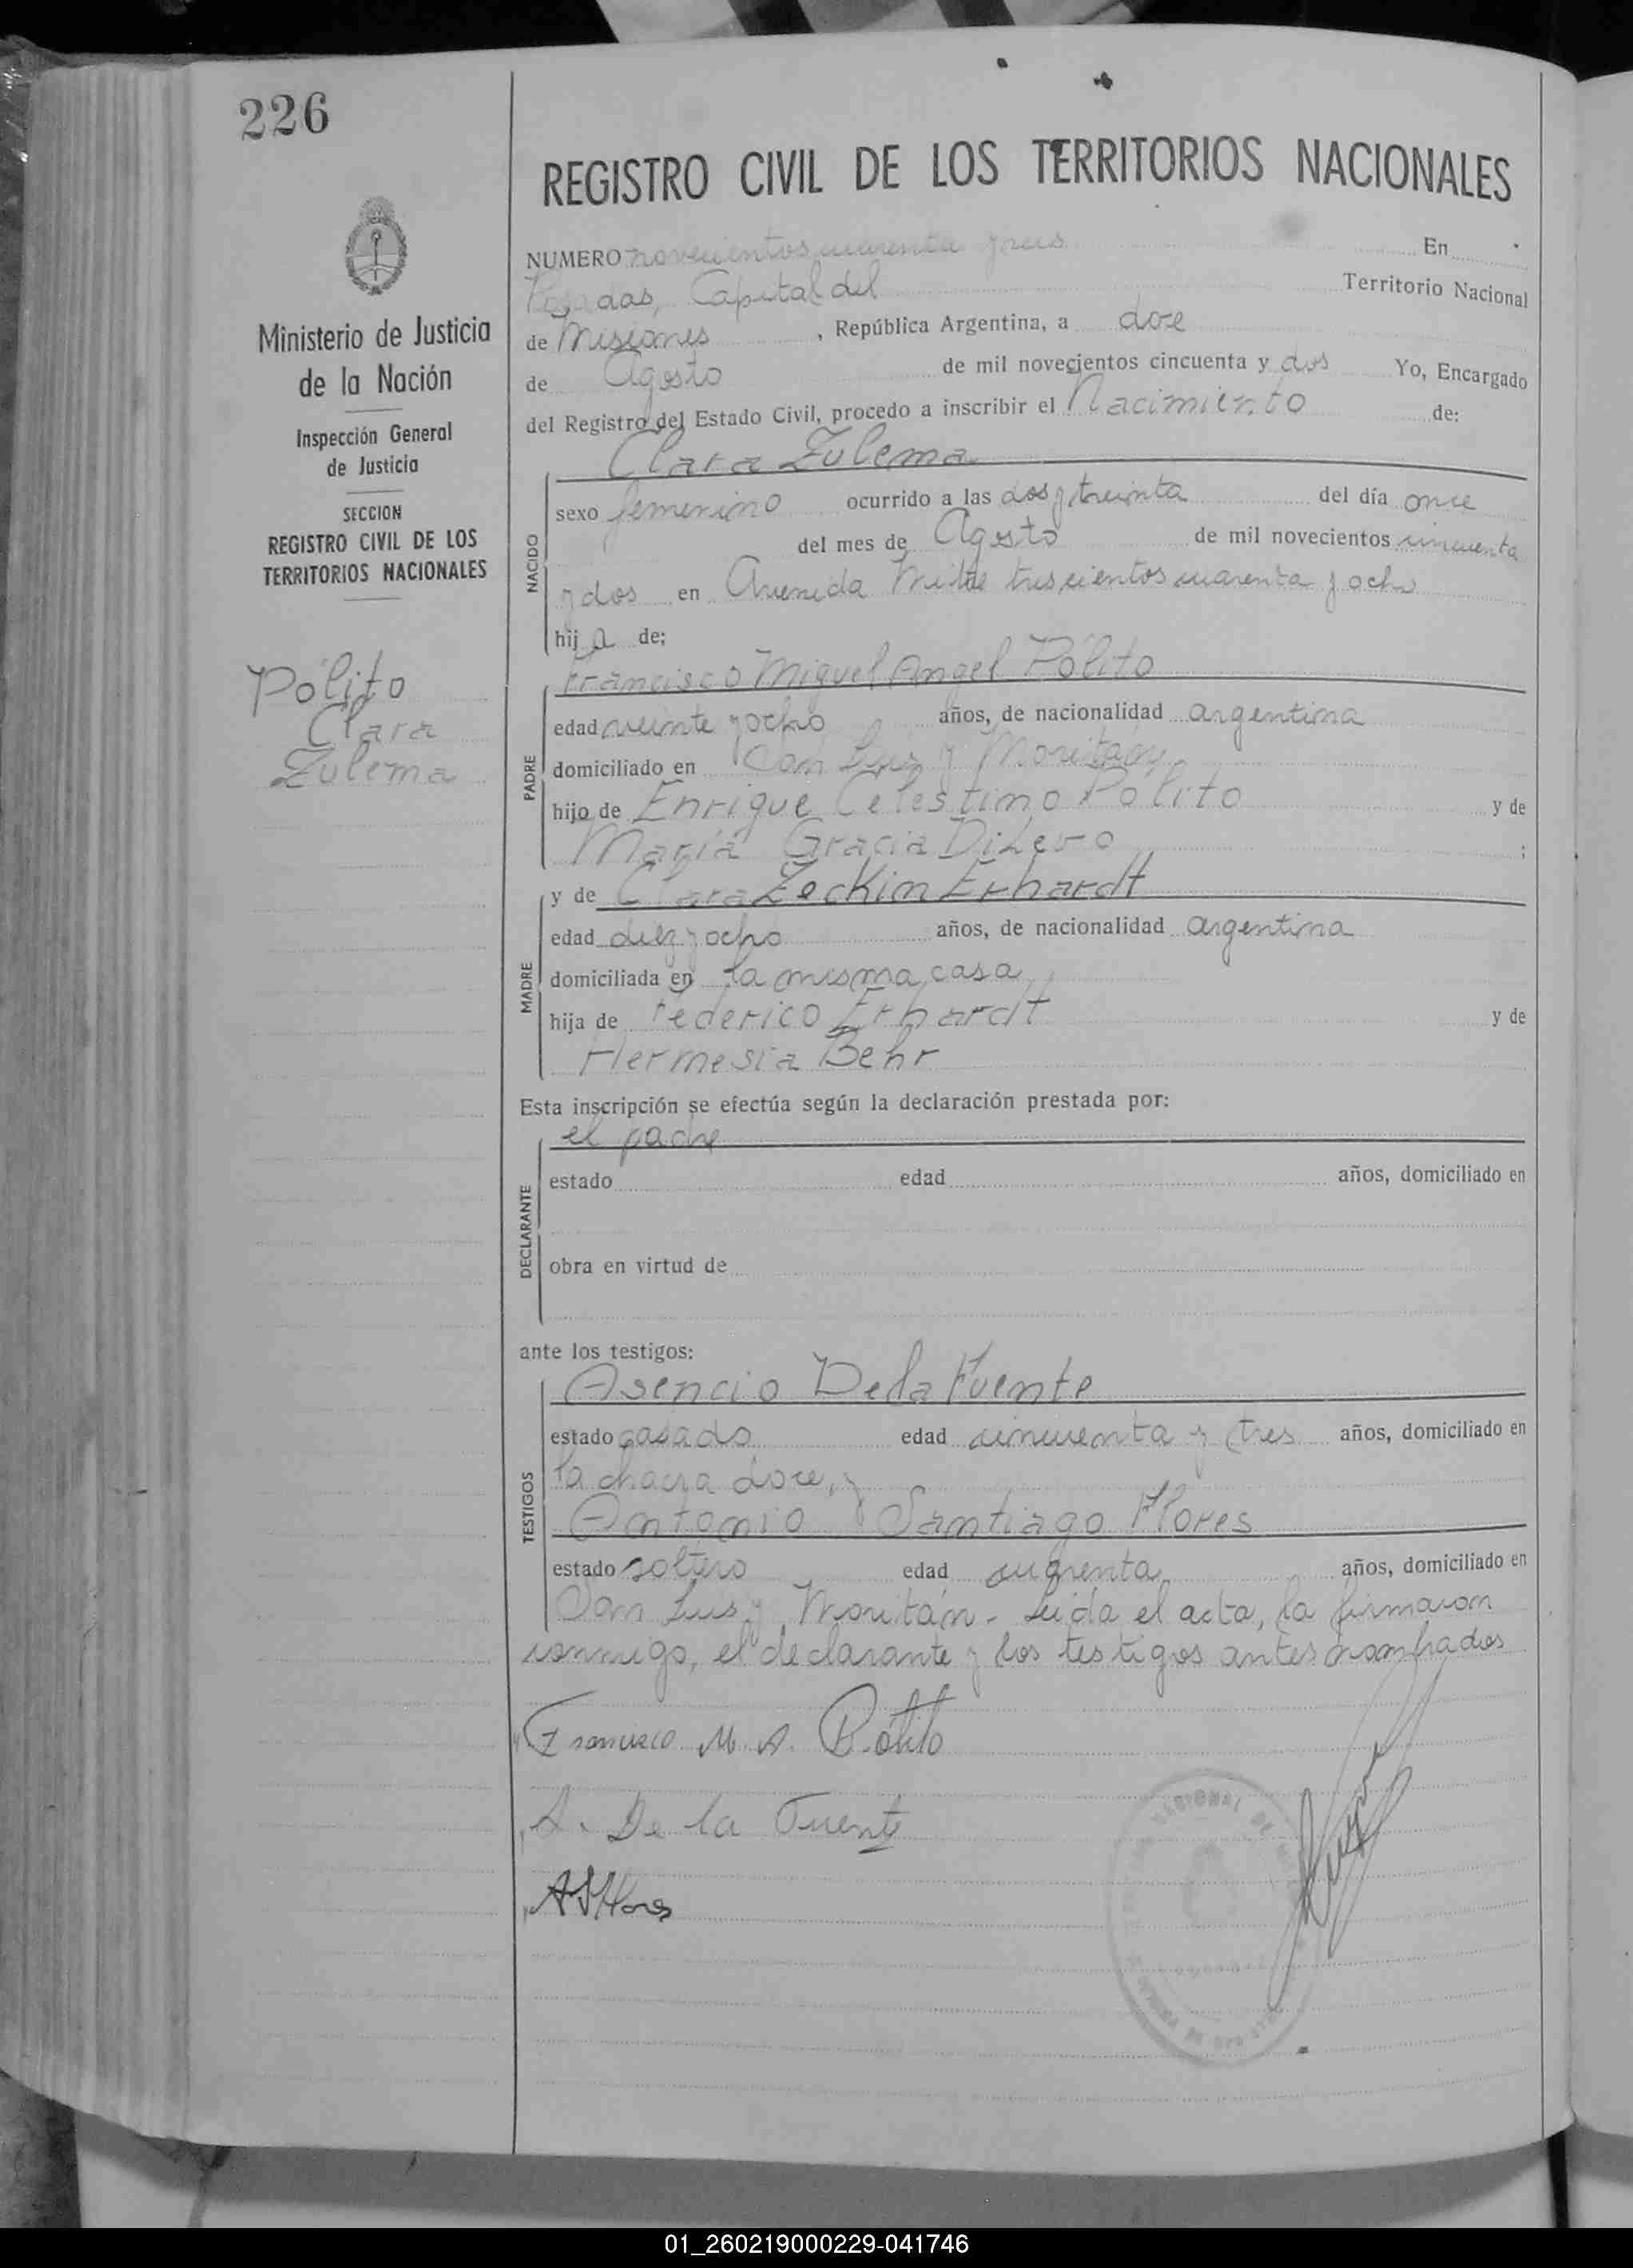 226
REGISTRO CIVIL DE LOS TERRITORIOS NACIONALES
Ministerio de Justicia
de la Nación
Inspección General
de Justicia
SECCION
REGISTRO CIVIL DE LOS
TERRITORIOS NACIONALES
Pólito
Clara
Zulema
NUMERO novecientos cuarenta y seis En
Posadas, Capital del Territorio Nacional
de Misiones, República Argentina, a doce
de Agosto de mil novecientos cincuenta y dos Yo, Encargado
del Registro del Estado Civil, procedo a inscribir el Nacimiento de:
Clara Zulema
NACIDO
sexo femenino ocurrido a las dos y treinta del día once
del mes de Agosto de mil novecientos cincuenta
y dos en Avenida Mitre trescientos cuarenta y ocho
hija de:
Francisco Miguel Angel Pólito
PADRE
edad veinte y ocho años, de nacionalidad argentina
domiciliado en San Luis y Moritán,
hijo de Enrique Celestino Pólito y de
María Gracia DiLevo ;
y de Clara Zeckin Erhardt
MADRE
edad diez y ocho años, de nacionalidad argentina
domiciliada en la misma casa,
hija de Federico Erhardt y de
Hermesia Behr
Esta inscripción se efectúa según la declaración prestada por:
el padre
DECLARANTE
estado edad años, domiciliado en
obra en virtud de
ante los testigos:
Asencio De la Fuente
TESTIGOS
estado casado edad cincuenta y tres años, domiciliado en
la chacra doce, y
Antonio Santiago Flores
estado soltero edad cuarenta años, domiciliado en
San Luis y Moritán.- Leida el acta, la firmaron
conmigo, el declarante y los testigos antes nombrados
Francisco M. A. Pólito
A. De la Fuente
A S Flores
01_260219000229-041746